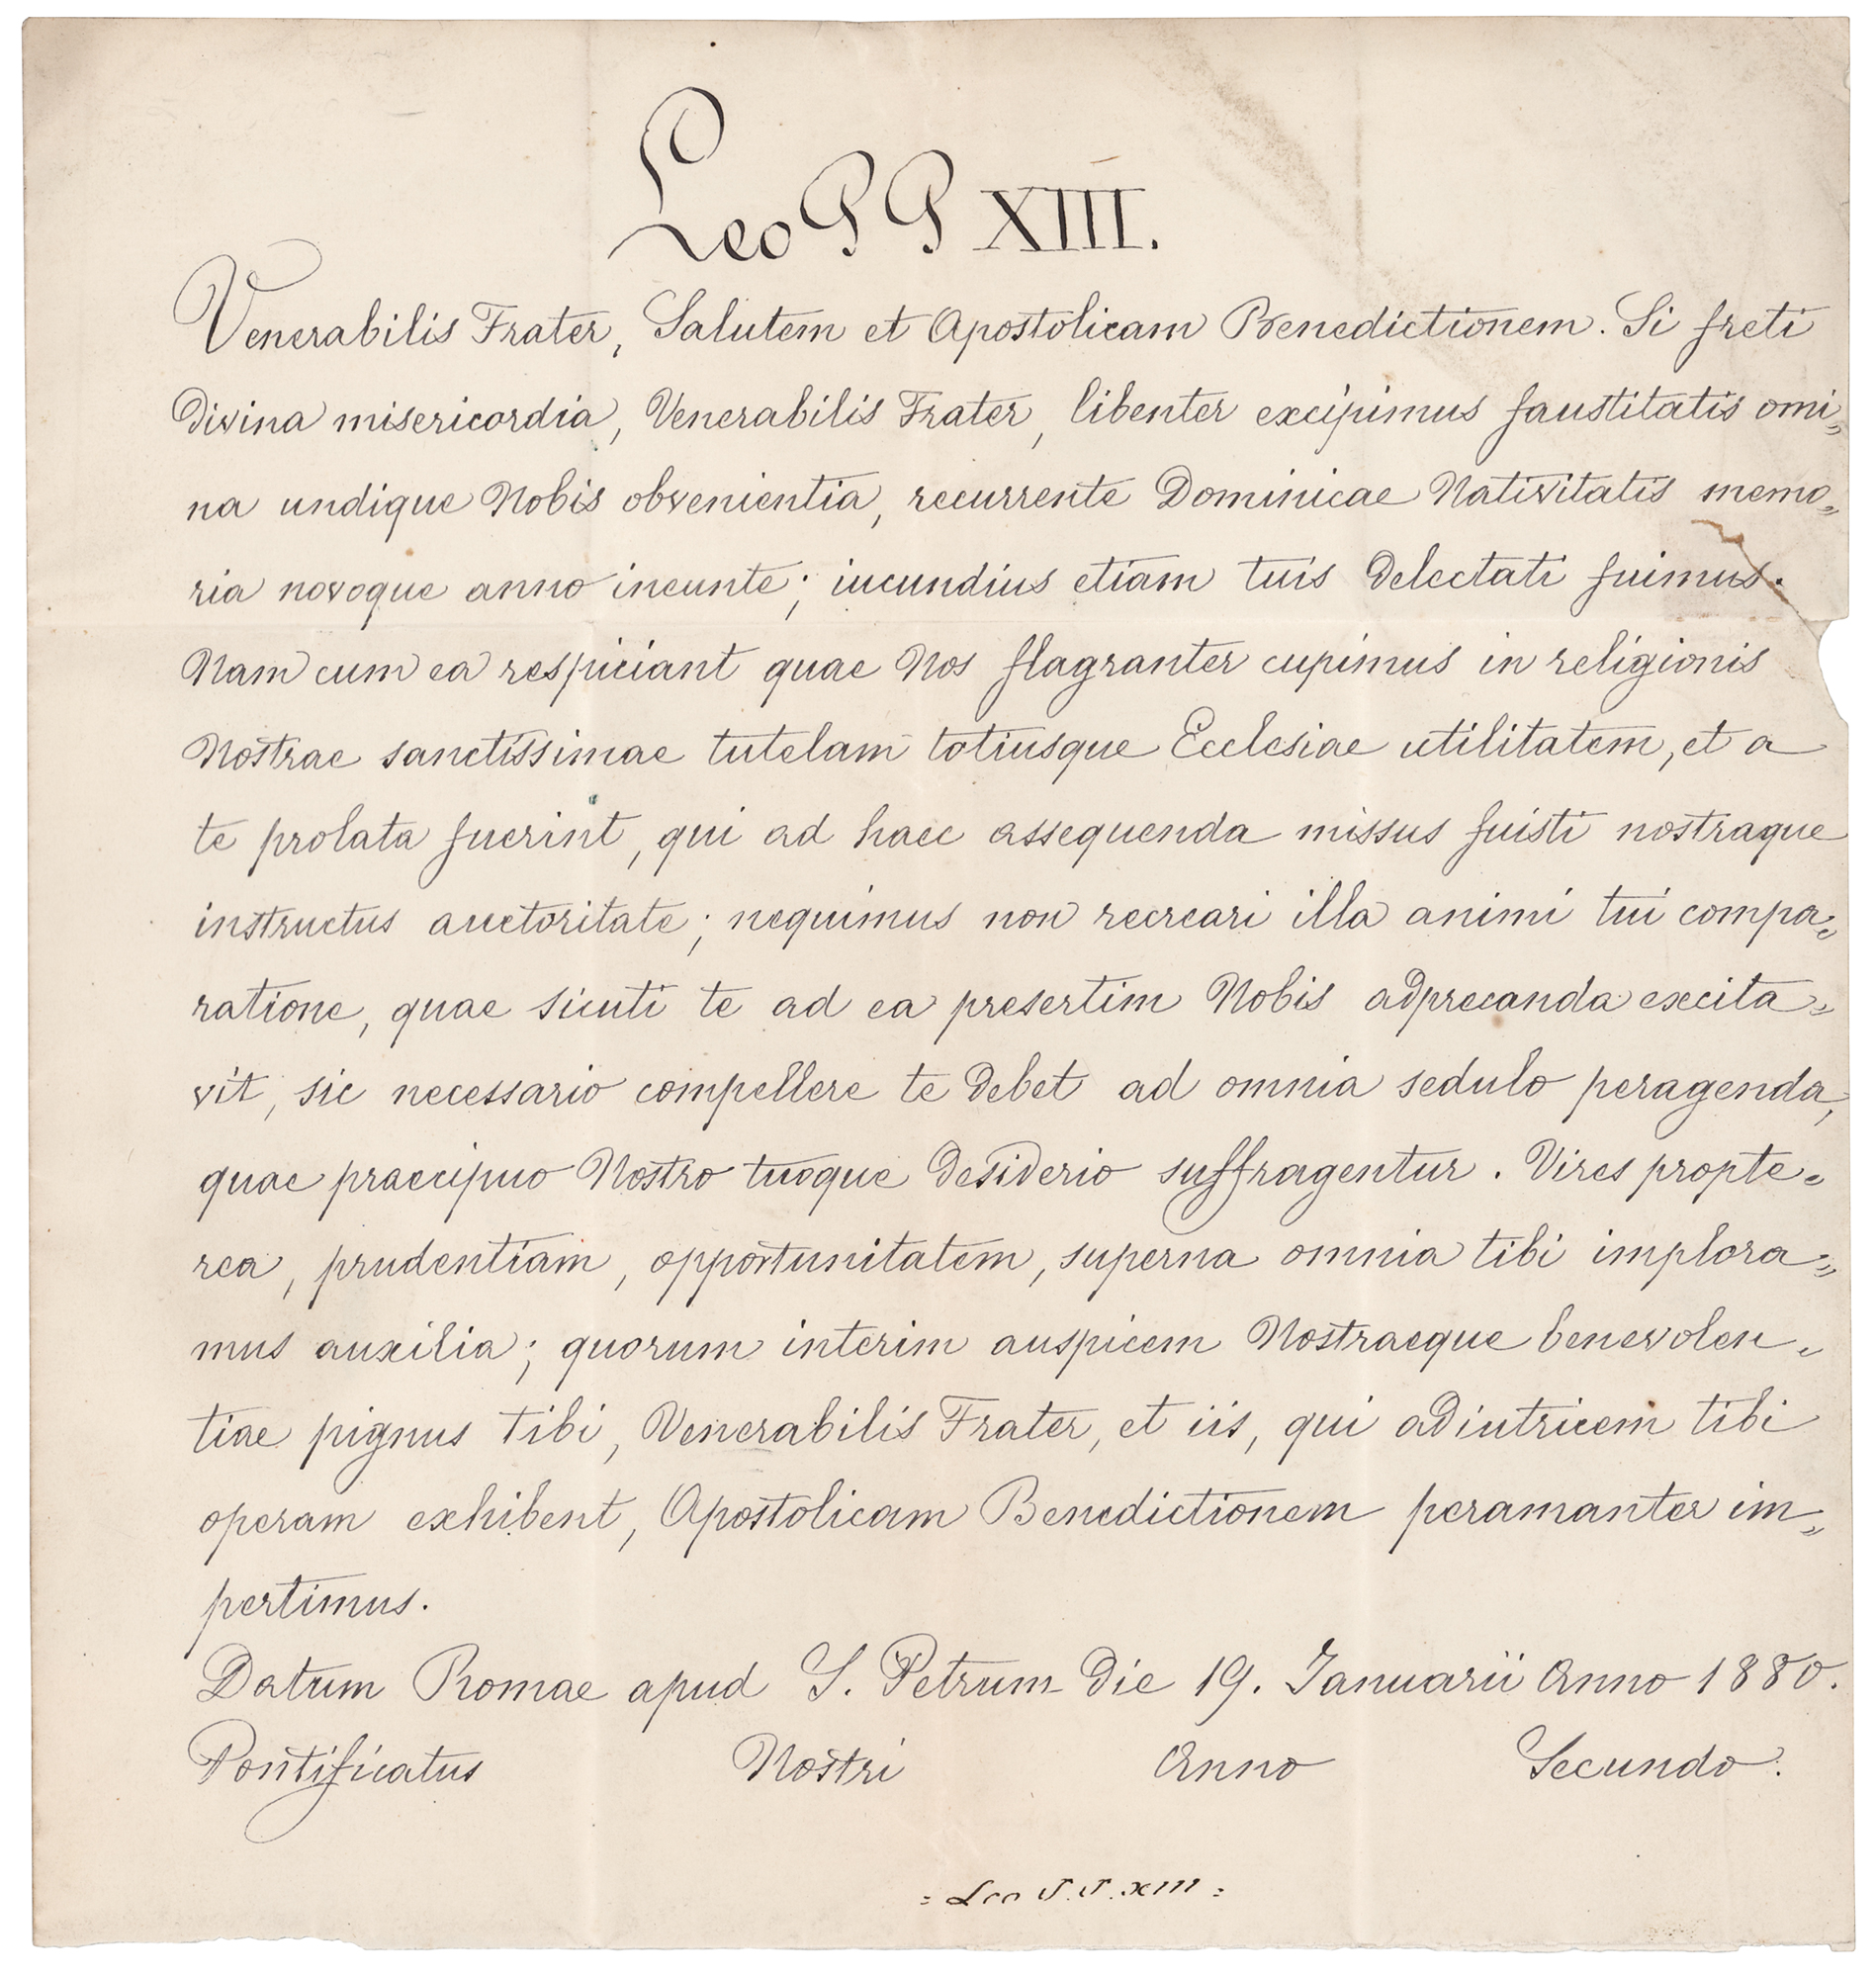 Leo PP XIII.
Venerabilis Frater, Salutem et Apostolicam Benedictionem. Si freti
divina misericordia, Venerabilis Frater, libenter excipimus faustitatis omi„
na undique Nobis obvenientia, recurrente Dominicae Nativitatis memo„
ria novoque anno ineunte; iucundius etiam tuis delectati fuimus.
Nam cum ea respiciant quae Nos flagranter cupimus in religionis
Nostrae sanctissimae tutelam totiusque Ecclesiae utilitatem, et a
te prolata fuerint, qui ad haec assequenda missus fuisti nostraque
instructus auctoritate; nequimus non recreari illa animi tui compa„
ratione, quae sicuti te ad ea presertim Nobis adprecanda excita„
vit, sic necessario compellere te debet ad omnia sedulo peragenda,
quae praecipuo Nostro tuoque desiderio suffragentur. Vires propte„
rea, prudentiam, opportunitatem, superna omnia tibi implora„
mus auxilia; quorum interim auspicem Nostraeque benevolen„
tiae pignus Tibi, Venerabilis Frater, et iis, qui adiutricem tibi
operam exhibent, Apostolicam Benedictionem peramanter im„
pertimus.
Datum Romae apud S. Petrum die 19. Januarii Anno 1880.
Pontificatus Nostri Anno Secundo.
= Leo P.P. XIII =